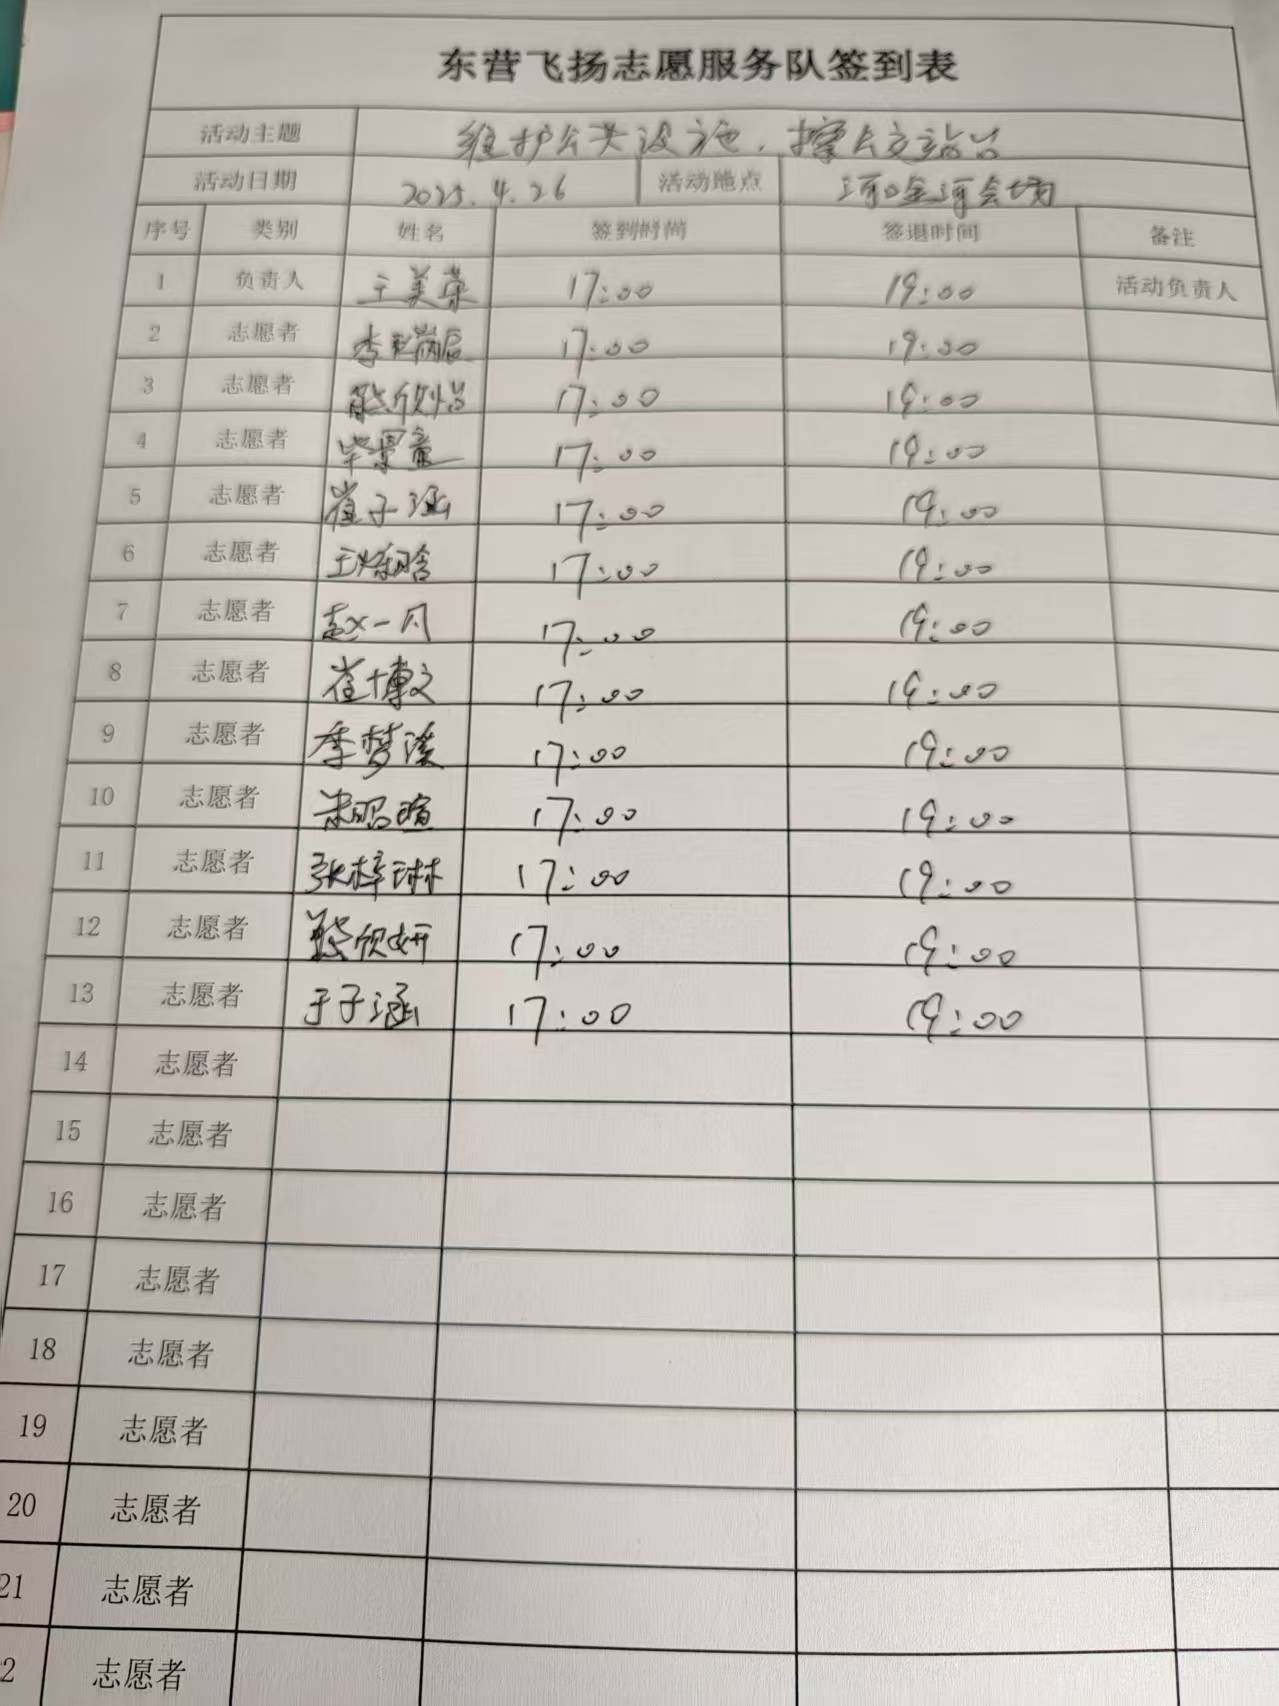 东营飞扬志愿服务队签到表
活动主题 维护公共设施，擦公交站台
活动日期 2025.4.26 活动地点 河口金河会场
序号 类别 姓名 签到时间 签退时间 备注
1 负责人 王美荣 17:00 19:00 活动负责人
2 志愿者 17:00 19:00
3 志愿者 熊欣怡 17:00 19:00
4 志愿者 毕景童 17:00 19:00
5 志愿者 崔子涵 17:00 19:00
6 志愿者 17:00 19:00
7 志愿者 赵一凡 17:00 19:00
8 志愿者 崔博文 17:00 19:00
9 志愿者 季梦溪 17:00 19:00
10 志愿者 朱昭瑄 17:00 19:00
11 志愿者 张梓琳 17:00 19:00
12 志愿者 17:00 19:00
13 志愿者 于子涵 17:00 19:00
14 志愿者
15 志愿者
16 志愿者
17 志愿者
18 志愿者
19 志愿者
20 志愿者
21 志愿者
2 志愿者